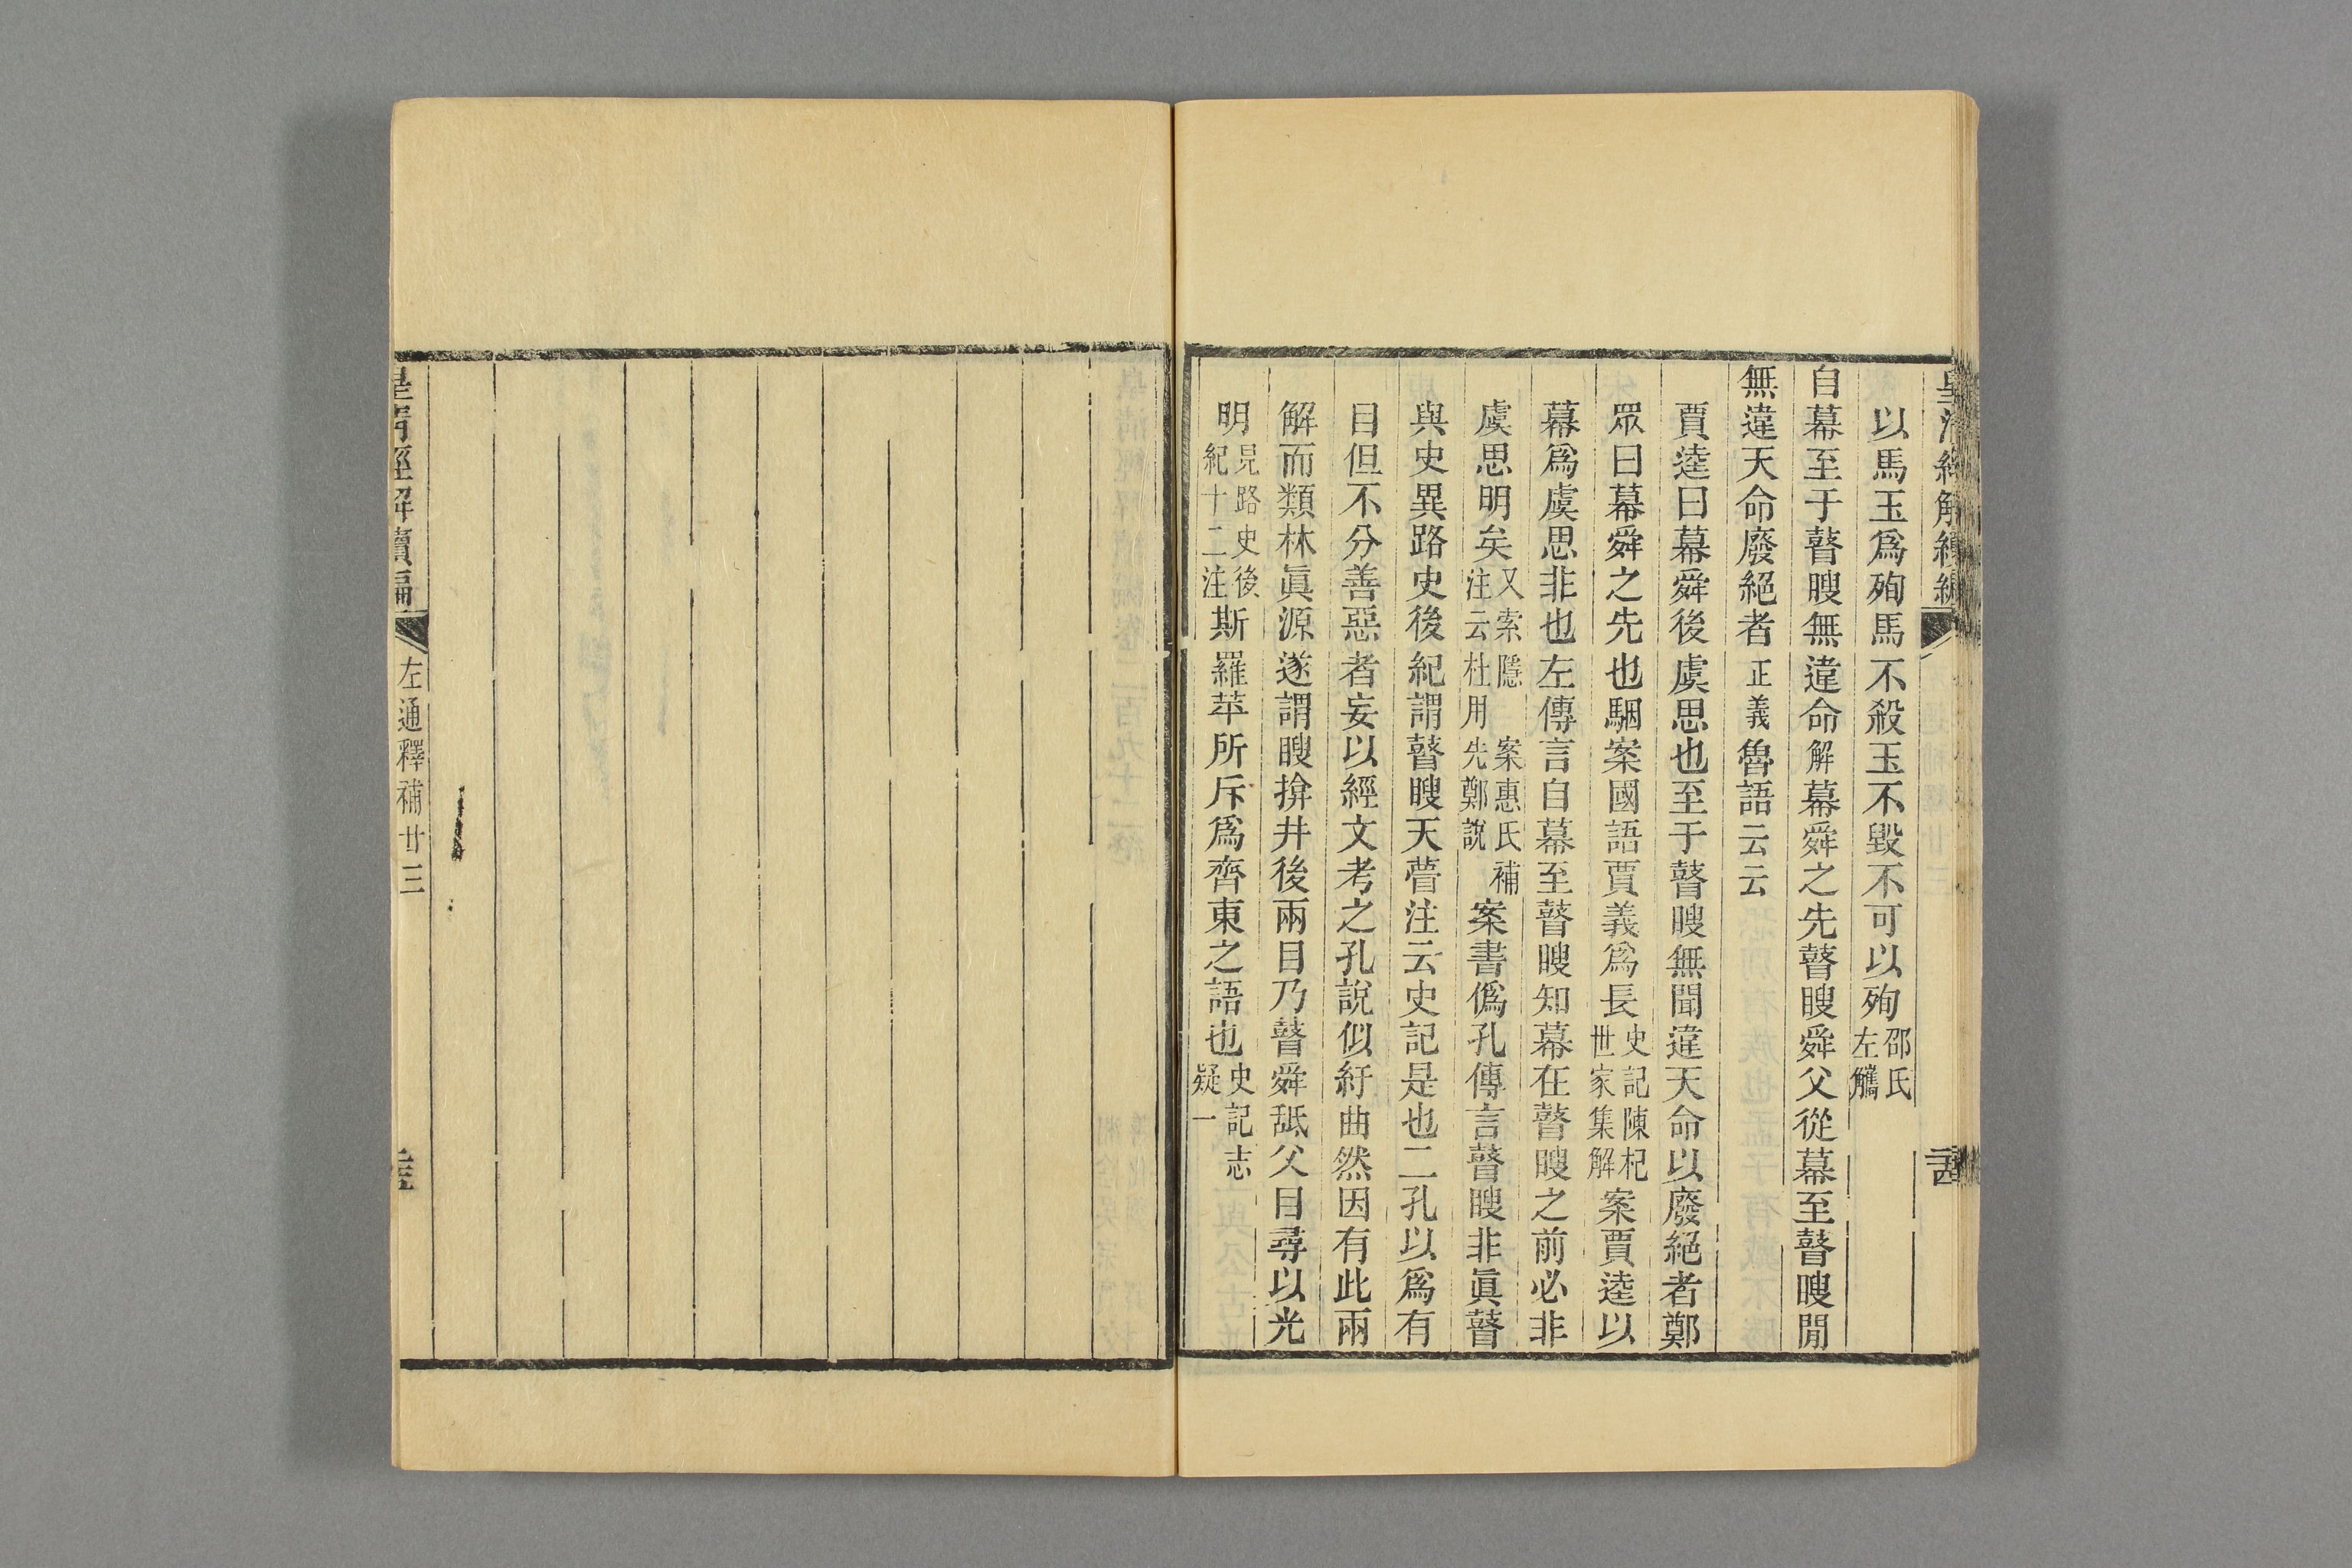 以馬玉爲殉馬不殺玉不毀不可以殉邵氏左觿
自幕至于瞽瞍無違命解幕舜之先瞽瞍舜父從幕至瞽瞍閒
無違天命廢絕者正義魯語云云
賈逵曰幕舜後虞思也至于瞽瞍無聞違天命以廢絕者鄭
眾曰幕舜之先也駰案國語賈義爲長史記陳杞世家集解案賈逵以
幕爲虞思非也左傳言自幕至瞽瞍知幕在瞽瞍之前必非
虞思明矣又索隱注云杜用案惠氏補先鄭說案書僞孔傳言瞽瞍非眞瞽
與史異路史後紀謂瞽瞍天瞢注云史記是也二孔以爲有
目但不分善惡者妄以經文考之孔說似紆曲然因有此兩
解而類林眞源遂謂瞍揜井後兩目乃瞽舜舐父目尋以光
明見路史後紀十二注斯羅苹所斥爲齊東之語也史記志疑一
皇清經解續編
左通釋補廿三